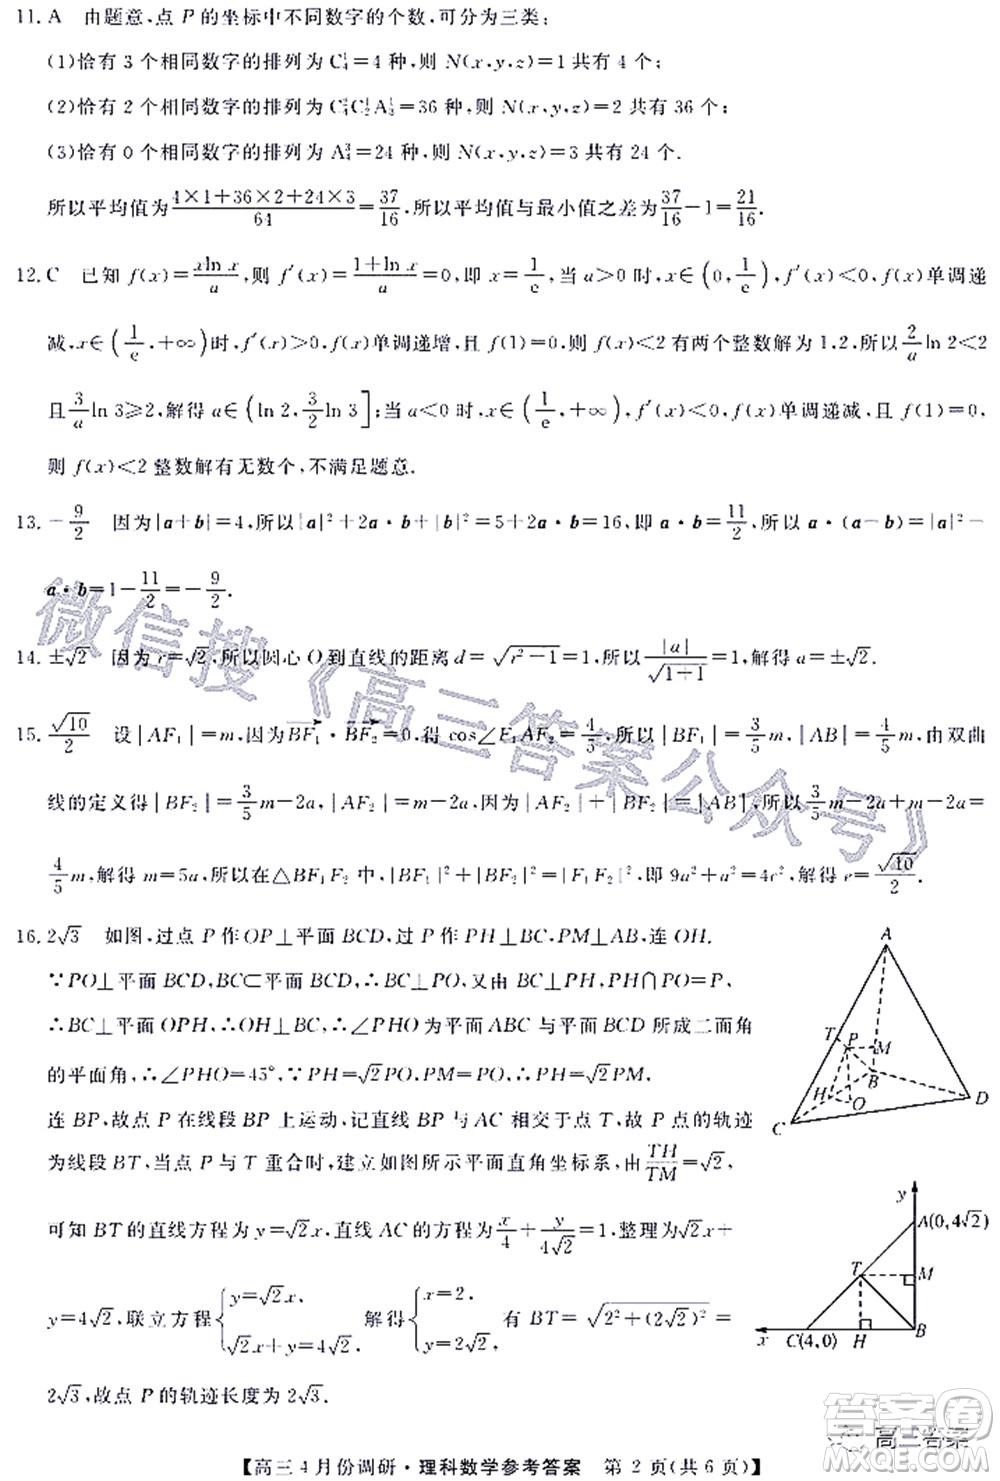 11. A 由题意,点 P 的坐标中不同数字的个数,可分为三类:
(1)恰有 3 个相同数字的排列为 C₄¹=4 种,则 N(x,y,z)=1 共有 4 个;
(2)恰有 2 个相同数字的排列为 C₄²C₂¹A₃¹=36 种,则 N(x,y,z)=2 共有 36 个;
(3)恰有 0 个相同数字的排列为 A₄³=24 种,则 N(x,y,z)=3 共有 24 个.
所以平均值为 (4×1+36×2+24×3)/64=37/16,所以平均值与最小值之差为 37/16-1=21/16.
12. C 已知 f(x)=xln x/a,则 f′(x)=(1+ln x)/a=0,即 x=1/e,当 a>0 时,x∈(0,1/e),f′(x)<0,f(x)单调递
减,x∈(1/e,+∞)时,f′(x)>0,f(x)单调递增,f(1)=0,所以 f(x)<2 有两个整数解为 1,2,所以 2/a ln 2<2
且 3/a ln 3≥2,解得 a∈(ln 2,3/2 ln 3];当 a<0 时,x∈(1/e,+∞),f′(x)<0,f(x)单调递减,且 f(1)=0,
则 f(x)<2 整数解有无数个,不满足题意.
13. -9/2 因为|a+b|=4,所以|a|²+2a·b+|b|²=5+2a·b=16,即 a·b=11/2,所以 a·(a-b)=|a|²-
a·b=1-11/2=-9/2.
14. ±√2 因为 r=√2,所以圆心 O 到直线的距离 d=√(r²-1)=1,所以 |a|/√(1+1)=1,解得 a=±√2.
15. √10/2 设|AF₁|=m,因为BF₁·BF₂=0,得 cos∠F₁AF₂=4/5,所以|BF₁|=3/5 m,|AB|=4/5 m,由双曲
线的定义得|BF₂|=3/5 m-2a,|AF₂|=m-2a,|AF₂|+|BF₂|=|AB|,所以 3/5 m-2a+m-2a=
4/5 m,解得 m=5a,所以在△BF₁F₂ 中,|BF₁|²+|BF₂|²=|F₁F₂|²,即 9a²+a²=4c²,解得 e=√10/2.
16. 2√3 如图,过点 P 作 OP⊥平面 BCD,过 P 作 PH⊥BC,PM⊥AB,连 OH.
∵PO⊥平面 BCD,BC⊂平面 BCD,∴BC⊥PO,又由 BC⊥PH,PH∩PO=P,
∴BC⊥平面 OPH,∴OH⊥BC,∴∠PHO 为平面 ABC 与平面 BCD 所成二面角
的平面角,∴∠PHO=45°,∴PH=√2PO,PM=PO,∴PH=√2PM,
连 BP,故点 P 在线段 BP 上运动,记直线 BP 与 AC 相交于点 T,故 P 点的轨迹
为线段 BT,当点 P 与 T 重合时,建立如图所示平面直角坐标系,由 TH/TM=√2,
可知 BT 的直线方程为 y=√2x,直线 AC 的方程为 x/4+y/4√2=1,整理为√2x+
y=4√2,联立方程{y=√2x, √2x+y=4√2 解得{x=2, y=2√2 有 BT=√(2²+(2√2)²)=
2√3,故点 P 的轨迹长度为 2√3.
A
T P M
H B
O D
C
y
A(0,4√2)
T M
x C(4,0) H B
微信搜《高三答案公众号》
答案圈
高三答案
MXQE.COM
【高三 4 月份调研·理科数学参考答案 第 2 页(共 6 页)】